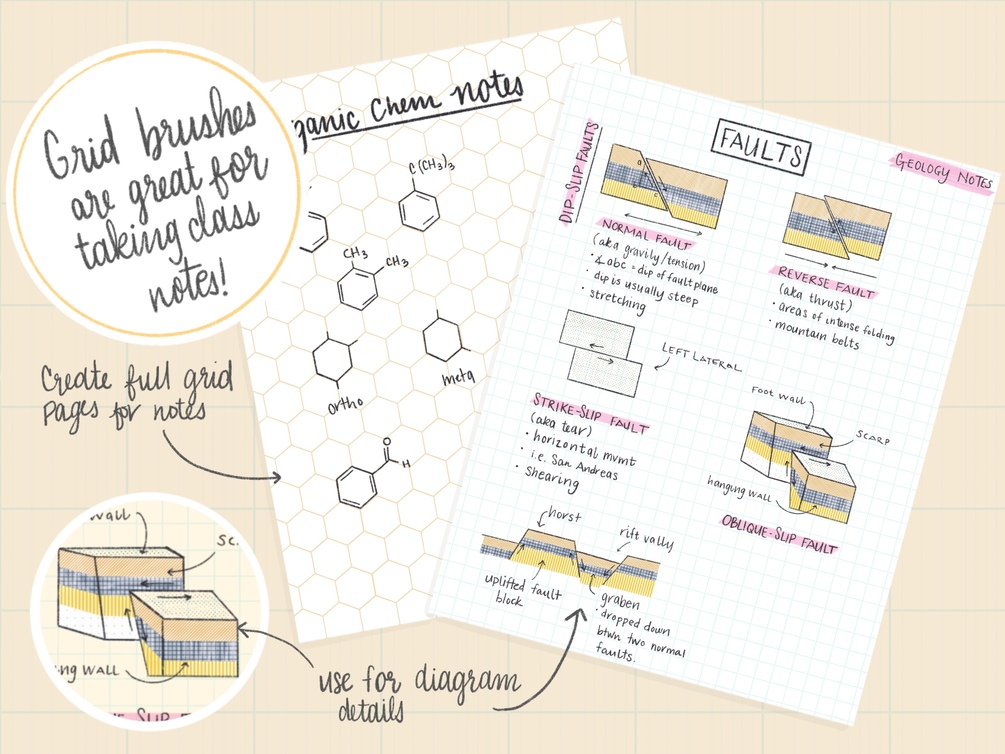 Grid brushes
are great for
taking class
notes!
Create full grid
pages for notes
ganic Chem notes
C(CH₃)₃
CH₃
CH₃
ortho
meta
O
H
FAULTS
GEOLOGY NOTES
DIP-SLIP FAULTS
NORMAL FAULT
(aka gravily/tension)
• ∡abc = dip of fault plane
• dip is usually steep
• stretching
REVERSE FAULT
(aka thrust)
• areas of intense folding
• mountain belts
LEFT LATERAL
STRIKE-SLIP FAULT
(aka tear)
• horizontal mvmt
• i.e. San Andreas
• Shearing
FOOT WALL
SCARP
hanging WALL
OBLIQUE-SLIP FAULT
horst
rift vally
uplifted fault
block
graben
• dropped down
btwn two normal
faults.
wall
SC.
ng WALL
E SLIP F
use for diagram
details